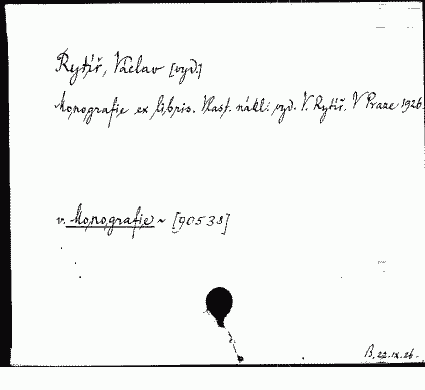 Rytíř, Václav [vyd.]
Monografie ex libris. Vlast. nákl. vyd. V. Rytíř. V Praze 1926.
v. Monografie ~ [90538]
B. 22.IX.26.